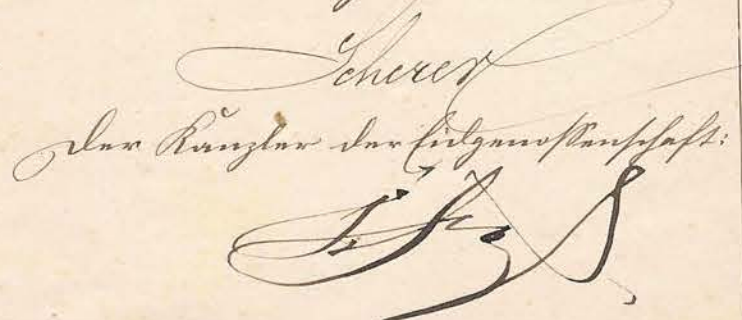 Scherer
Der Kanzler der Eidgenossenschaft: